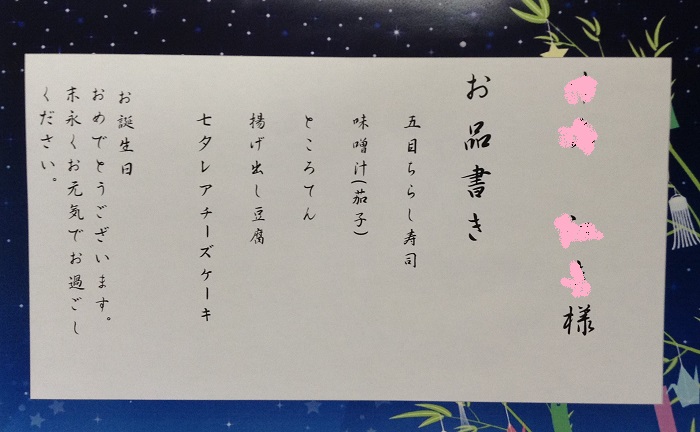 様
お品書き
五目ちらし寿司
味噌汁(茄子)
ところてん
揚げ出し豆腐
七夕レアチーズケーキ
お誕生日
おめでとうございます。
末永くお元気でお過ごし
ください。